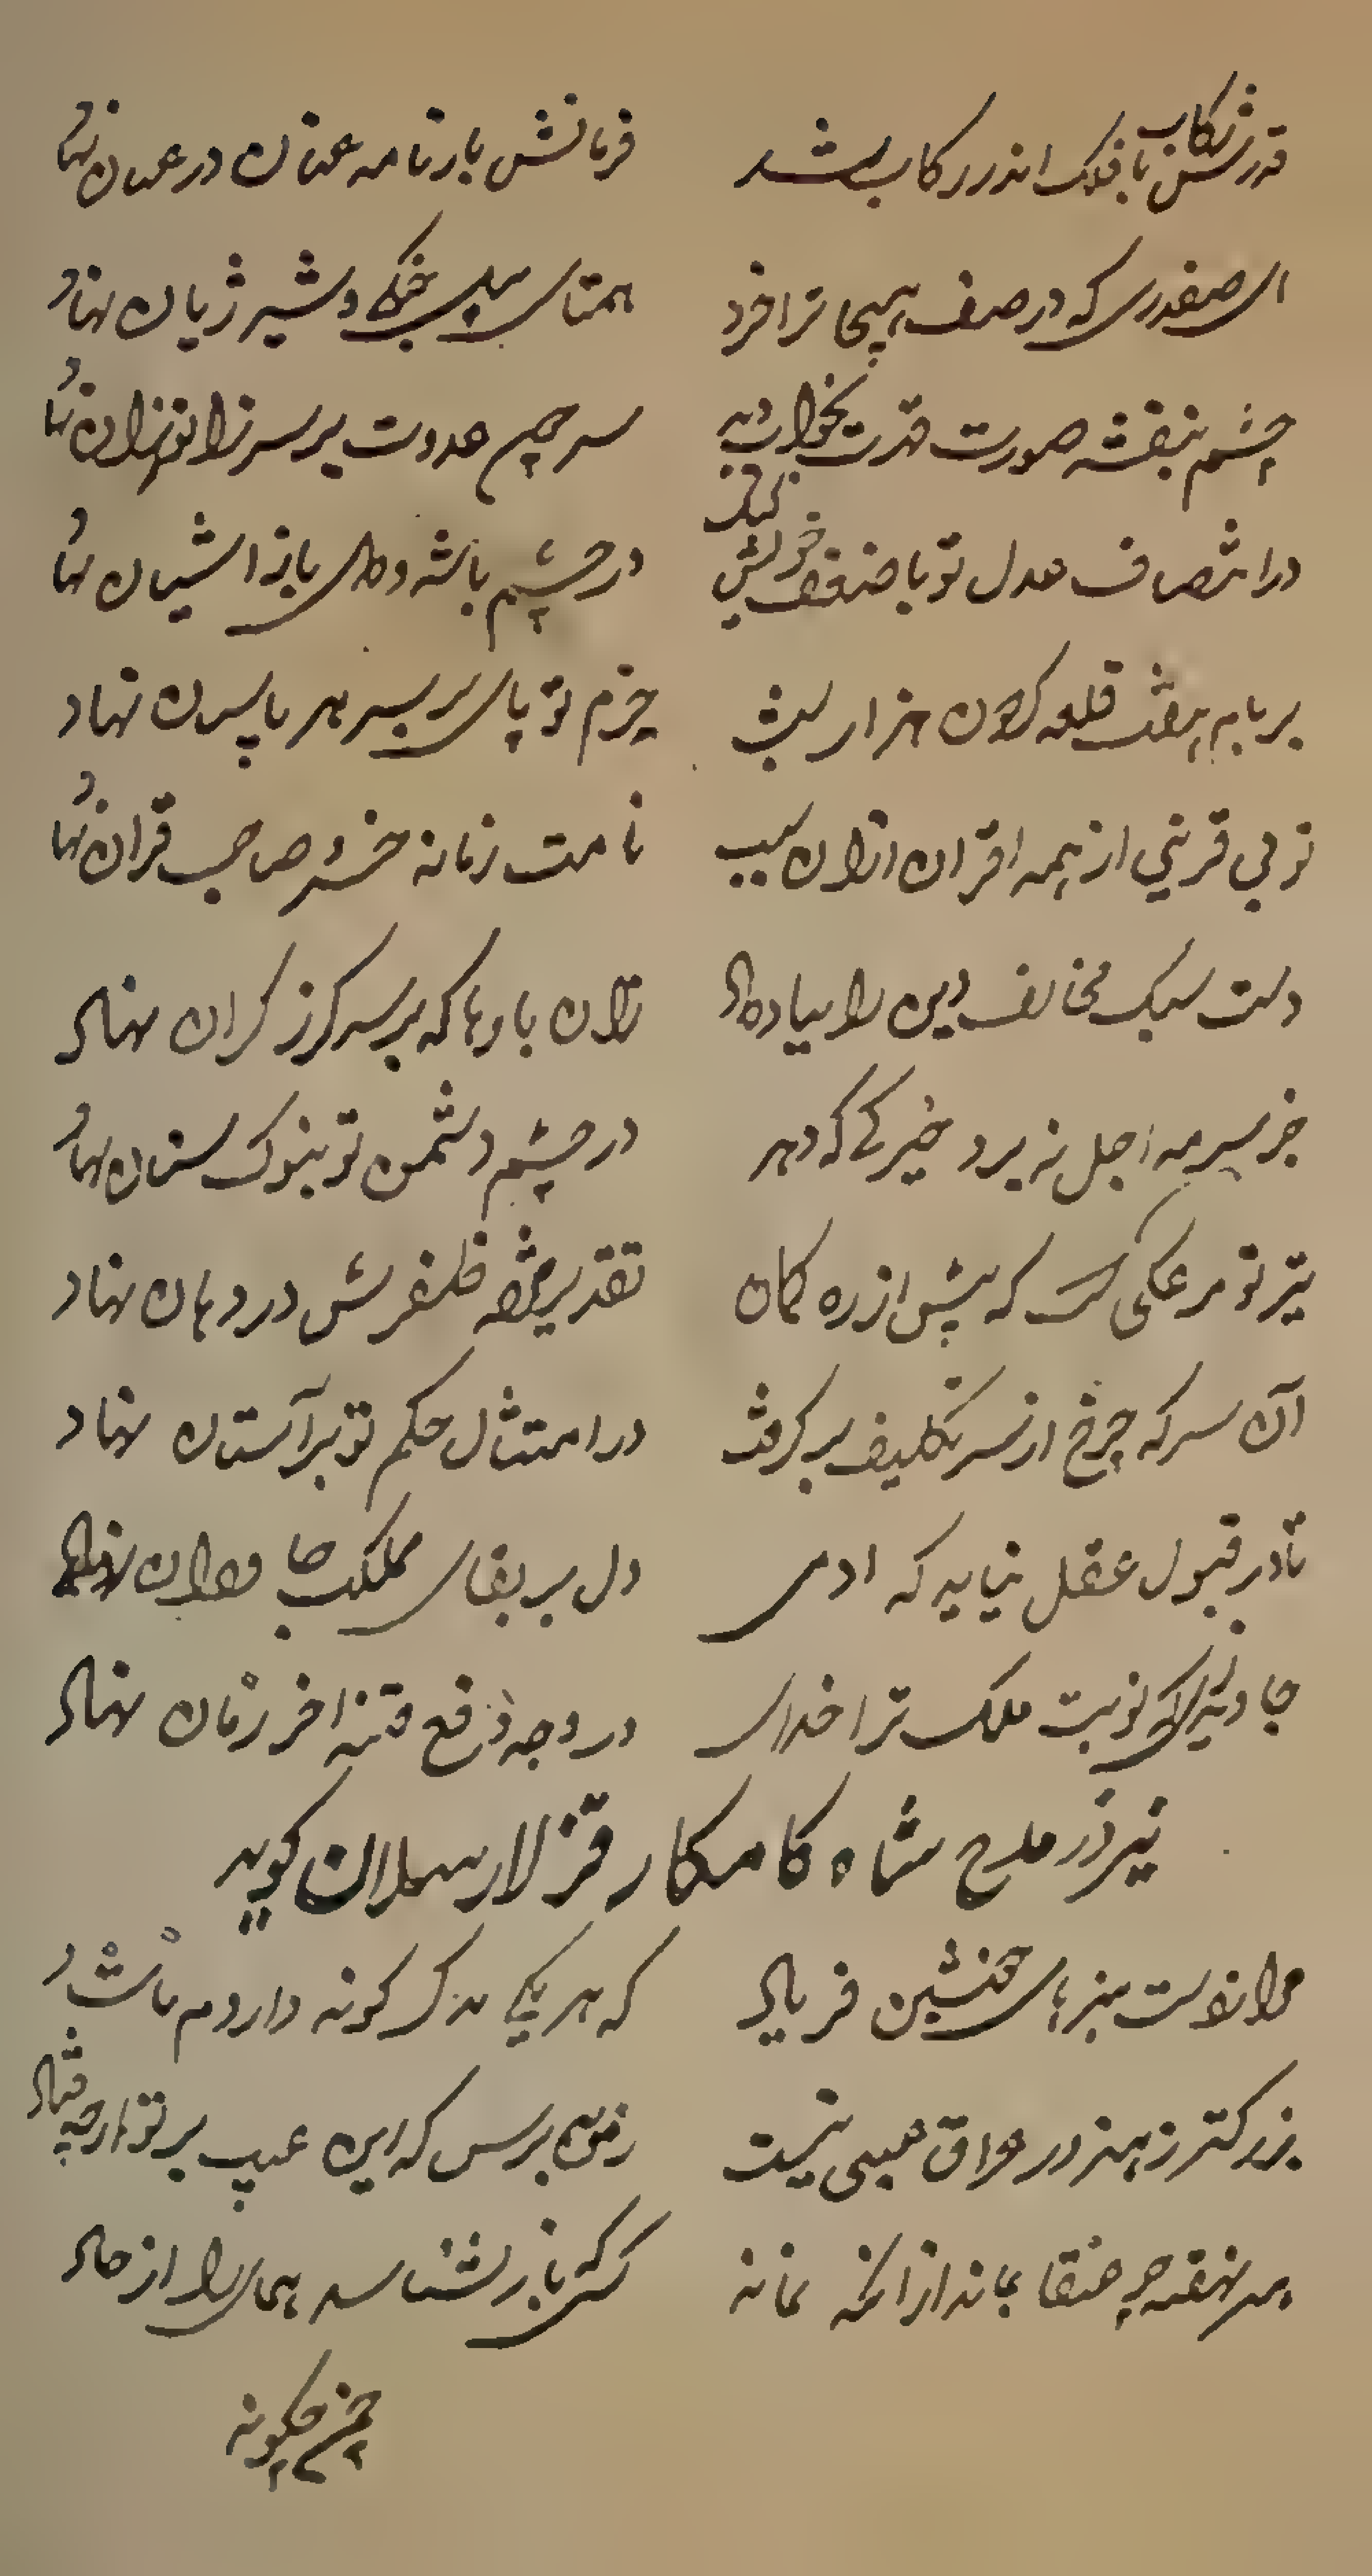 قدرش رکاب با فلک اندر رکاب شد فرمانش بارنامه عنان در عنان نهاد
ای صفدری که در صف هیجا ترا خرد همتای پیل جنگی و شیر ژیان نهاد
چشم بنفشه صورت قدرت بخواب دید سر چون عدوت بر سر زانو نهاد
در انتصاف عدل تو با ضعف خویش کبک در چشم باشه و دل باز اشیان نهاد
بر بام هفت قلعه گردون هزار شب حزم تو پای بر سر هر پاسبان نهاد
تو بی قرینی از همه اقران ازان سبب نامت زمانه خسرو صاحب قران نهاد
دست سبک مخالف دین را بباد داد زان بادها که بر سر گرز گران نهاد
جز سرمه اجل نه برد خیرگی که دهر در چشم دشمن تو بنوک سنان نهاد
تیر تو مرغکیست که پیش از زه کمان تقدیر بیضه ظفرش در دهان نهاد
آن سر که چرخ از سر تکلیف برگرفت در امتثال حکم تو بر آستان نهاد
تا در قبول عقل نیاید که ادمی دل بر بقای مملکت جاودان نهاد
جاوید زی که نوبت ملک ترا خدای در وجه دفع فتنه اخر زمان نهاد
نیز در مدح شاه کامکار قزل ارسلان گوید
مرا ز دست هنرهای خویشتن فریاد که هر یکی بدگر گونه داردم ناشاد
بزرگتر ز هنر در عراق عیبی نیست ز من بپرس که این عیب بر تو از چه فتاد
هنر نهفته چو عنقا بماند از انکه نماند کسی که باز شناسد همای را از خاد
چگونه